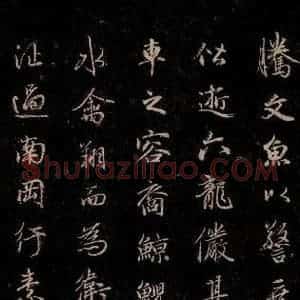 騰文魚以警乘
偕逝六龍儼其
車之容裔鯨鯢
水禽翔而為衛
沚過南岡紆素
Shufaziliao.com